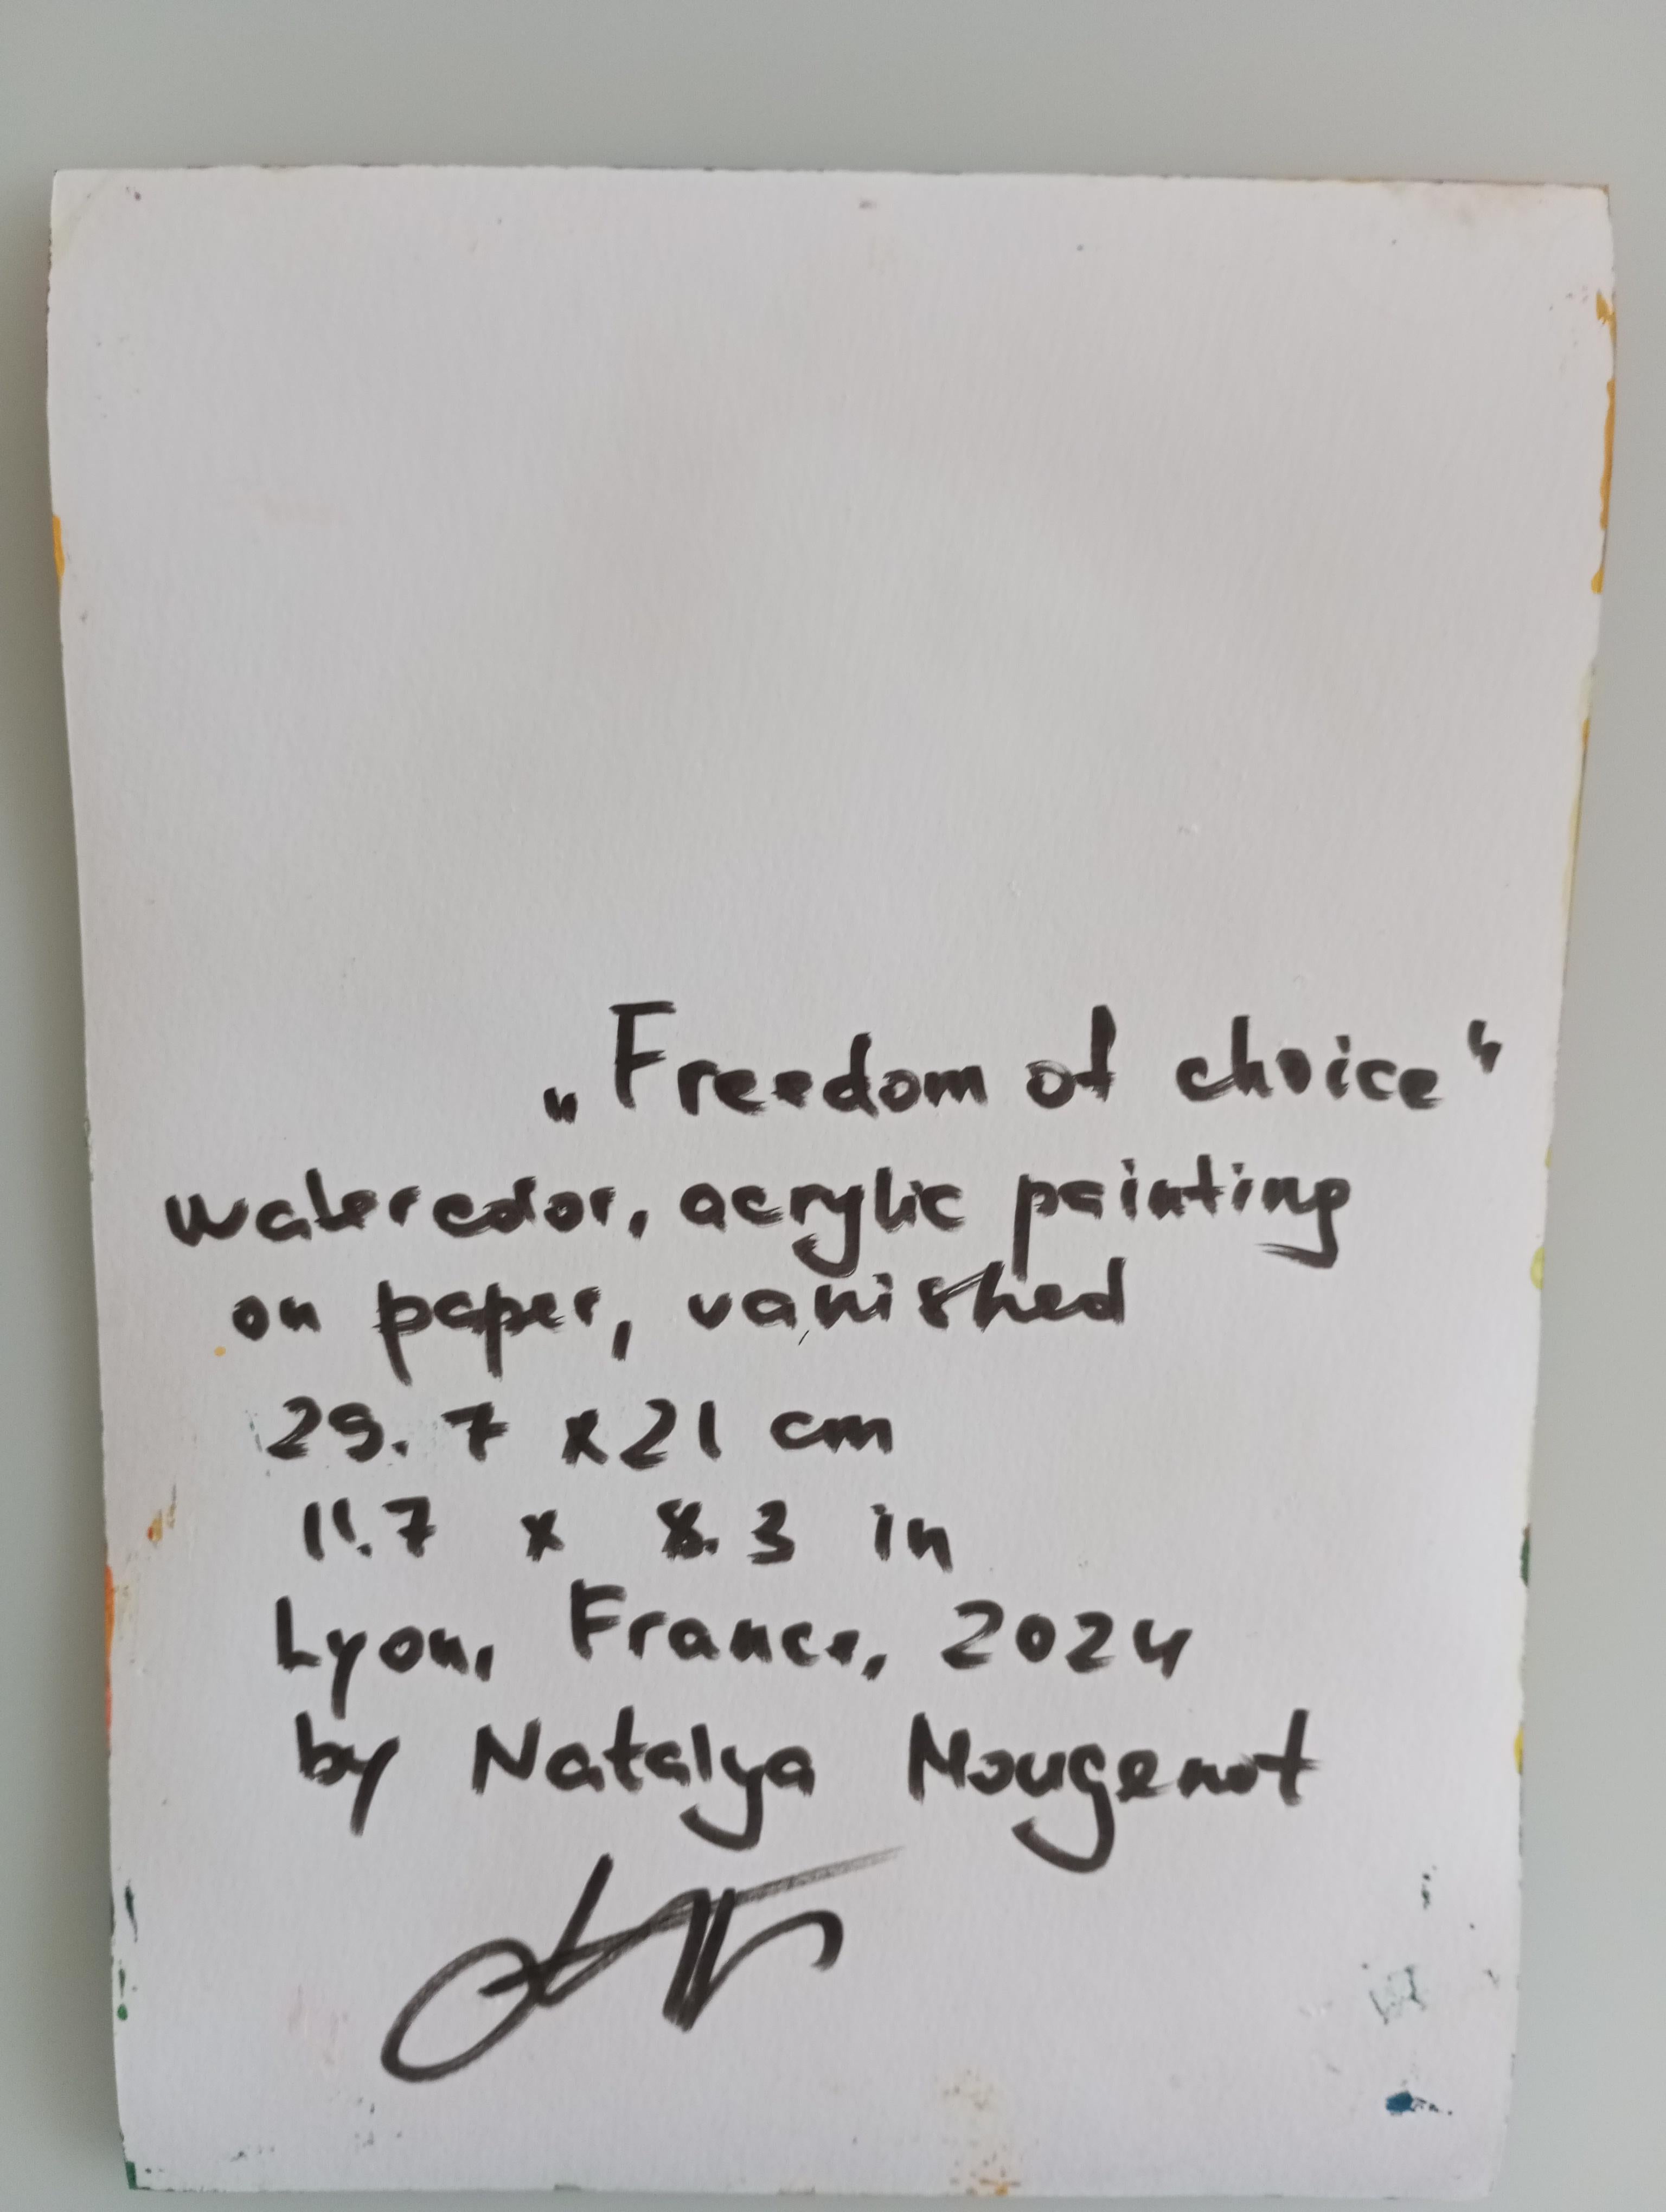 „Freedom of choice“
watercolor, acrylic painting
on paper, vanished
29.7 x 21 cm
11.7 x 8.3 in
Lyon, France, 2024
by Natalya Mougenot